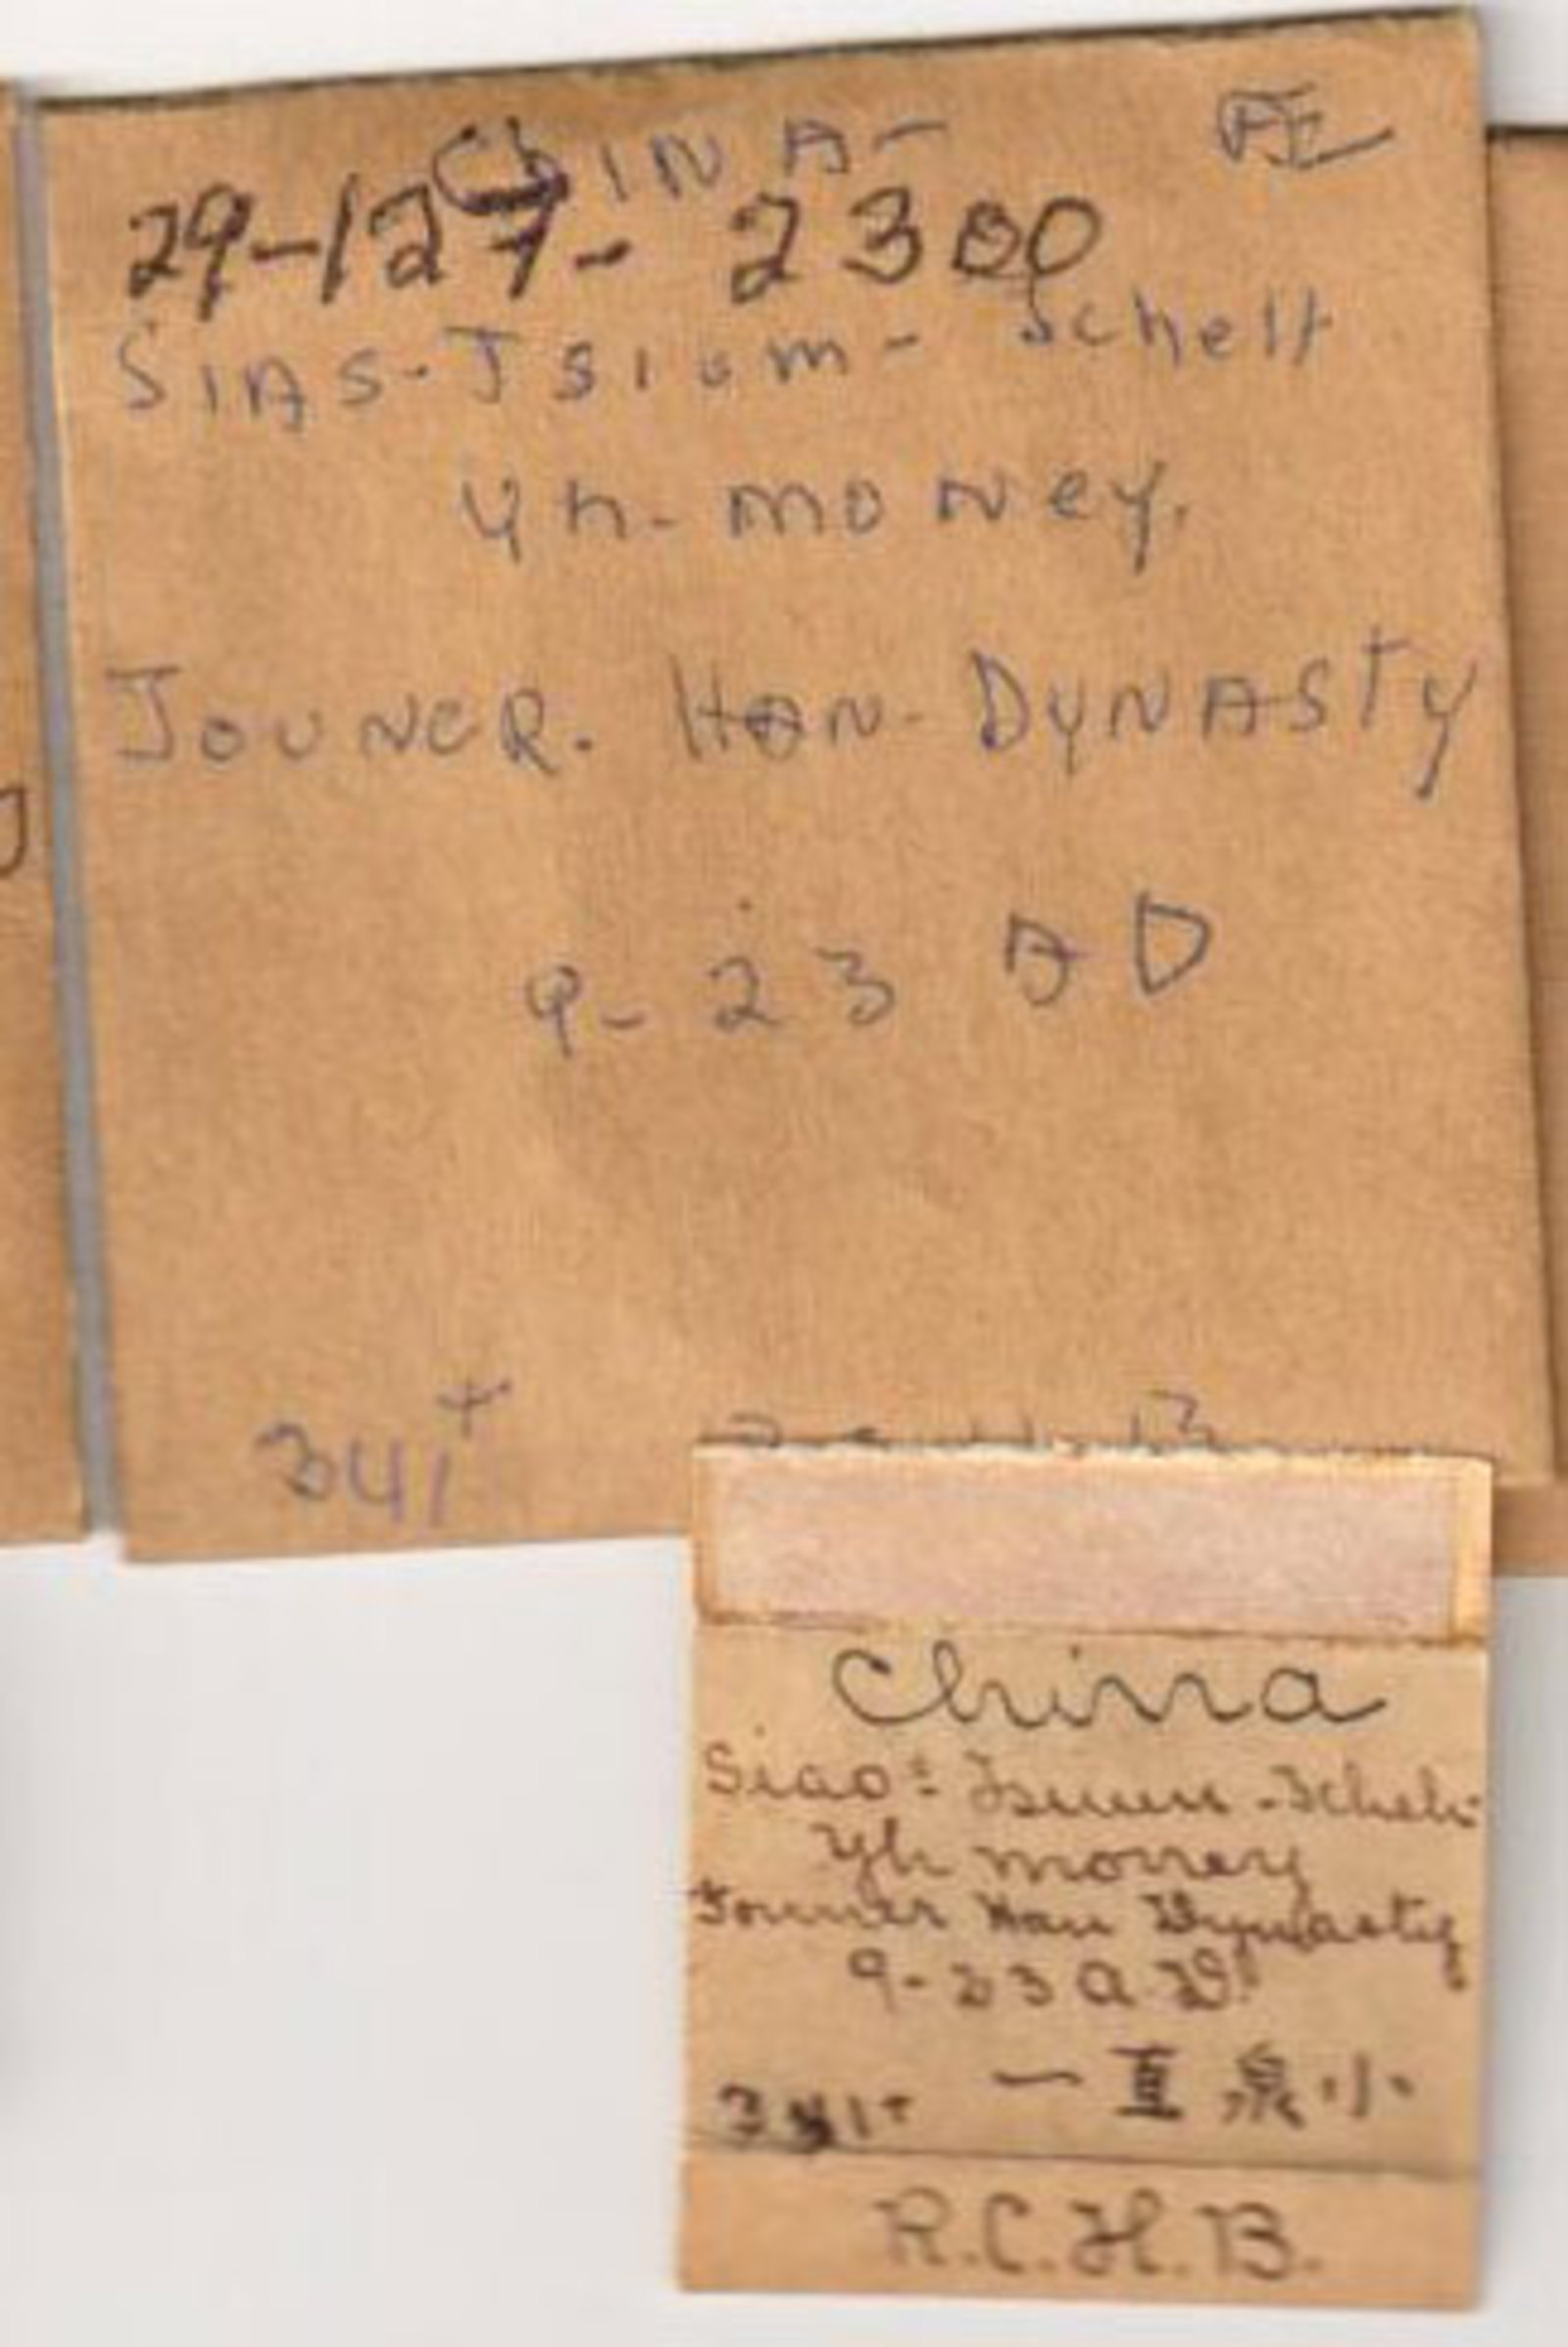 CHINA-
29-127- 2300
SIAS-JSIUM- Schelt
yh-money.
JOUNCR. HAN-DYNASTY
9-23 AD
341+
China
Siao-Tsuen-Scheh-
Yh money
Former Han Dynasty
9-23 A.D.
341+ 一直泉小
R.C.H.B.